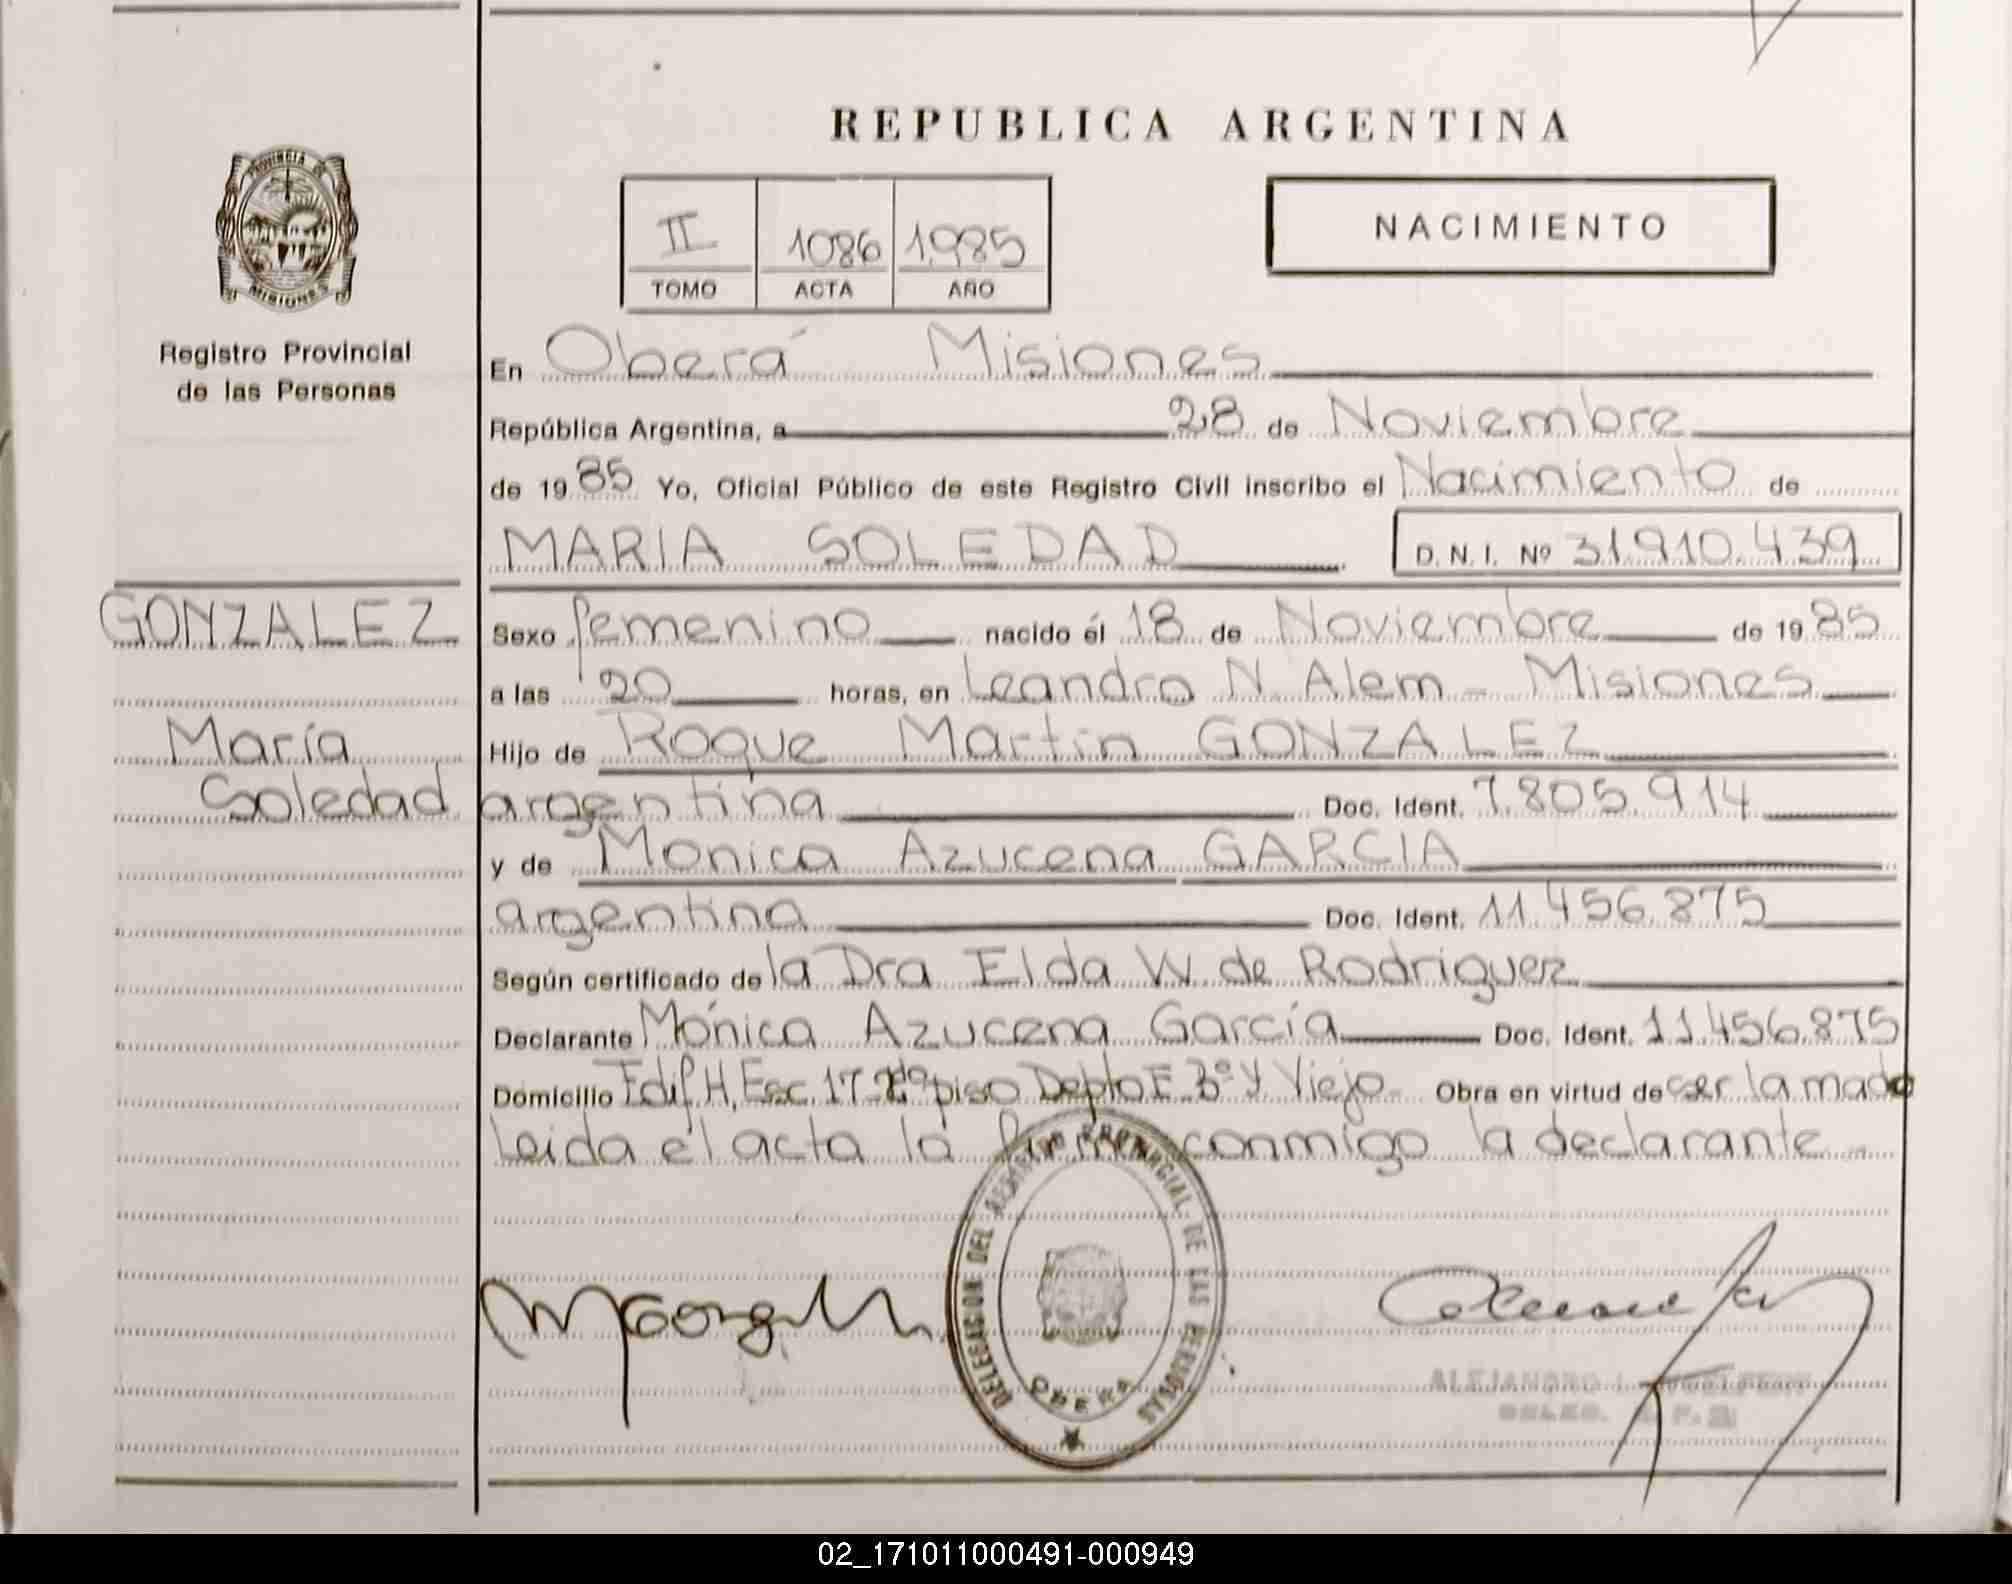 REPUBLICA ARGENTINA
PROVINCIA DE
MISIONES
Registro Provincial
de las Personas
II 1086 1985
TOMO ACTA AÑO
NACIMIENTO
En Oberá Misiones
República Argentina, a 28 de Noviembre
de 1985 Yo, Oficial Público de este Registro Civil inscribo el Nacimiento de
MARIA SOLEDAD D. N. I. Nº 31.910.439
GONZALEZ
Sexo femenino nacido él 18 de Noviembre de 1985
a las 20 horas, en Leandro N Alem - Misiones
María
Soledad
Hijo de Roque Martín GONZALEZ
argentina Doc. Ident. 7.805.914
y de Monica Azucena GARCIA
argentina Doc. Ident. 11.456.875
Según certificado de la Dra Elda W de Rodriguez
Declarante Mónica Azucena García Doc. Ident. 11.456.875
Domicilio Edif H, Esc. 17 piso Depto E Bº Y Viejo Obra en virtud de ser la madre
Leida el acta la firma conmigo la declarante
DELEGACION DEL REGISTRO PROVINCIAL DE LAS PERSONAS
OBERA
ALEJANDRO
02_171011000491-000949